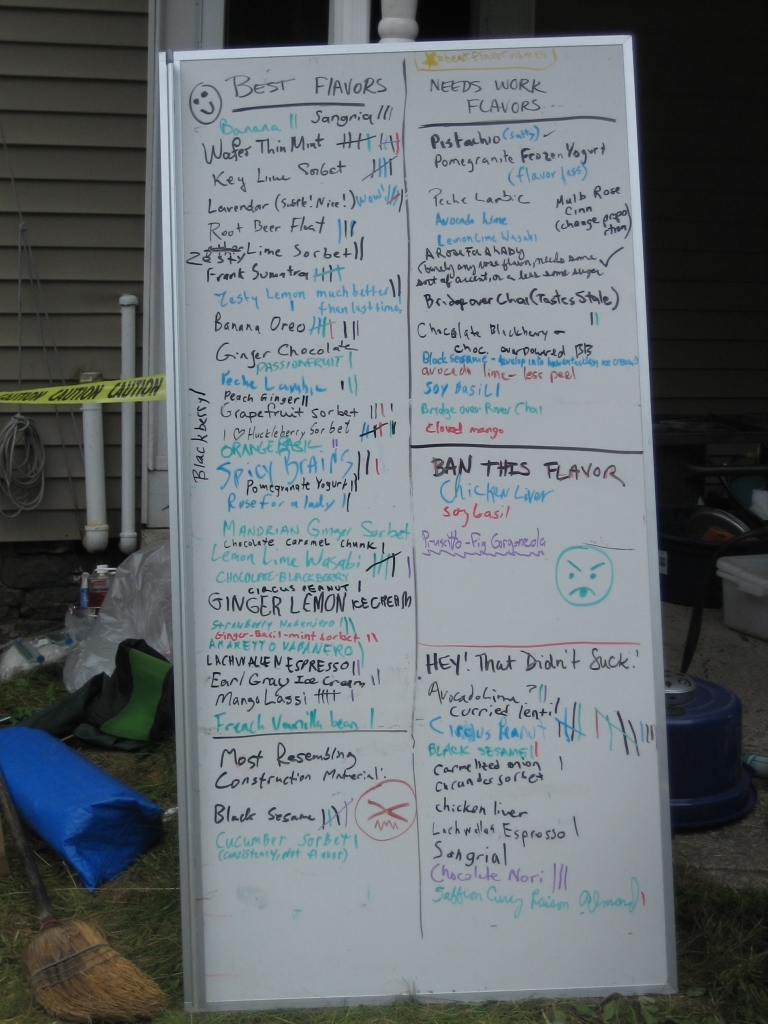 BEST FLAVORS
Banana
Sangria
Wafer Thin Mint
Key Lime Sorbet
Lavendar (Subtle! Nice!) Wow!
Root Beer Float
Zesty Lime Sorbet
Frank Sumatra
Zesty Lemon much better
than last time,
Banana Oreo
Ginger Chocolate
PASSIONFRUIT
Peche Lambic
Peach Ginger
Grapefruit Sorbet
I ♡ Huckleberry Sorbet
ORANGE BASIL
SPICY BRAINS
Pomegranate Yogurt
Rose for a lady
Blackberry
MANDRIAN Ginger Sorbet
Chocolate Caramel Chunk
Lemon Lime Wasabi
CHOCOLATE-BLACKBERRY
CIRCUS PEANUT
GINGER LEMON ICE CREAM
Strawberry Habenero
Ginger-Basil-mint sorbet
AMARETTO HABANERO
LACHWALLEN ESPRESSO
Earl Gray Ice Cream
Mango Lassi
French Vanilla bean
Most Resembling
Construction Material:
Black Sesame
Cucumber Sorbet
(consistency, not flavor)
best flavor names
NEEDS WORK
FLAVORS...
Pistachio (salty)
Pomegranite Frozen Yogurt
(flavorless)
Peche Lambic
Mulb Rose
Cinn
(change propor
tion)
Avocado Lime
Lemon Lime Wasabi
A ROSE FOR A LADY
(barely any rose flavor, needs some
sort of accent, or a less some sugar
Bridge over Chai (Tastes Stale)
Chocolate Blackberry -
choc. overpowered BB
Black sesame - develop into
avocado lime - less peel
SOY BASIL
Bridge over River Chai
cloved mango
BAN THIS FLAVOR
Chicken Liver
soy basil
Prusciutto-Fig Gorgoneola
HEY! That Didn't Suck!
Avocado Lime?
Curried lentil
Circus Peanut
BLACK SESAME
Carmelized onion
Cucumber sorbet
chicken liver
Lachwallas Espresso
Sangria
Chocolate Nori
Saffron Curry Raison Almond
CAUTION CAUTION CAUTION